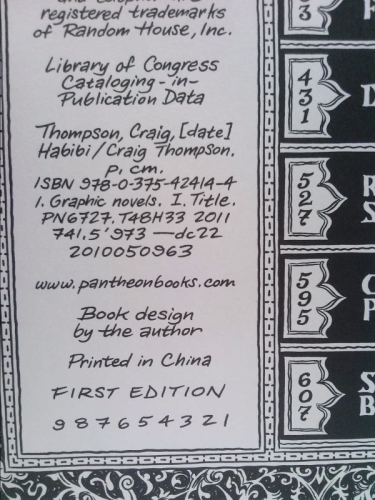 registered trademarks
of Random House, Inc.
Library of Congress
Cataloging-in-
Publication Data
Thompson, Craig, [date]
Habibi / Craig Thompson.
p. cm.
ISBN 978-0-375-42414-4
1. Graphic novels. I. Title.
PN6727.T48H33 2011
741.5'973—dc22
2010050963
www.pantheonbooks.com
Book design
by the author
Printed in China
FIRST EDITION
9 8 7 6 5 4 3 2 1
431
527
595
607